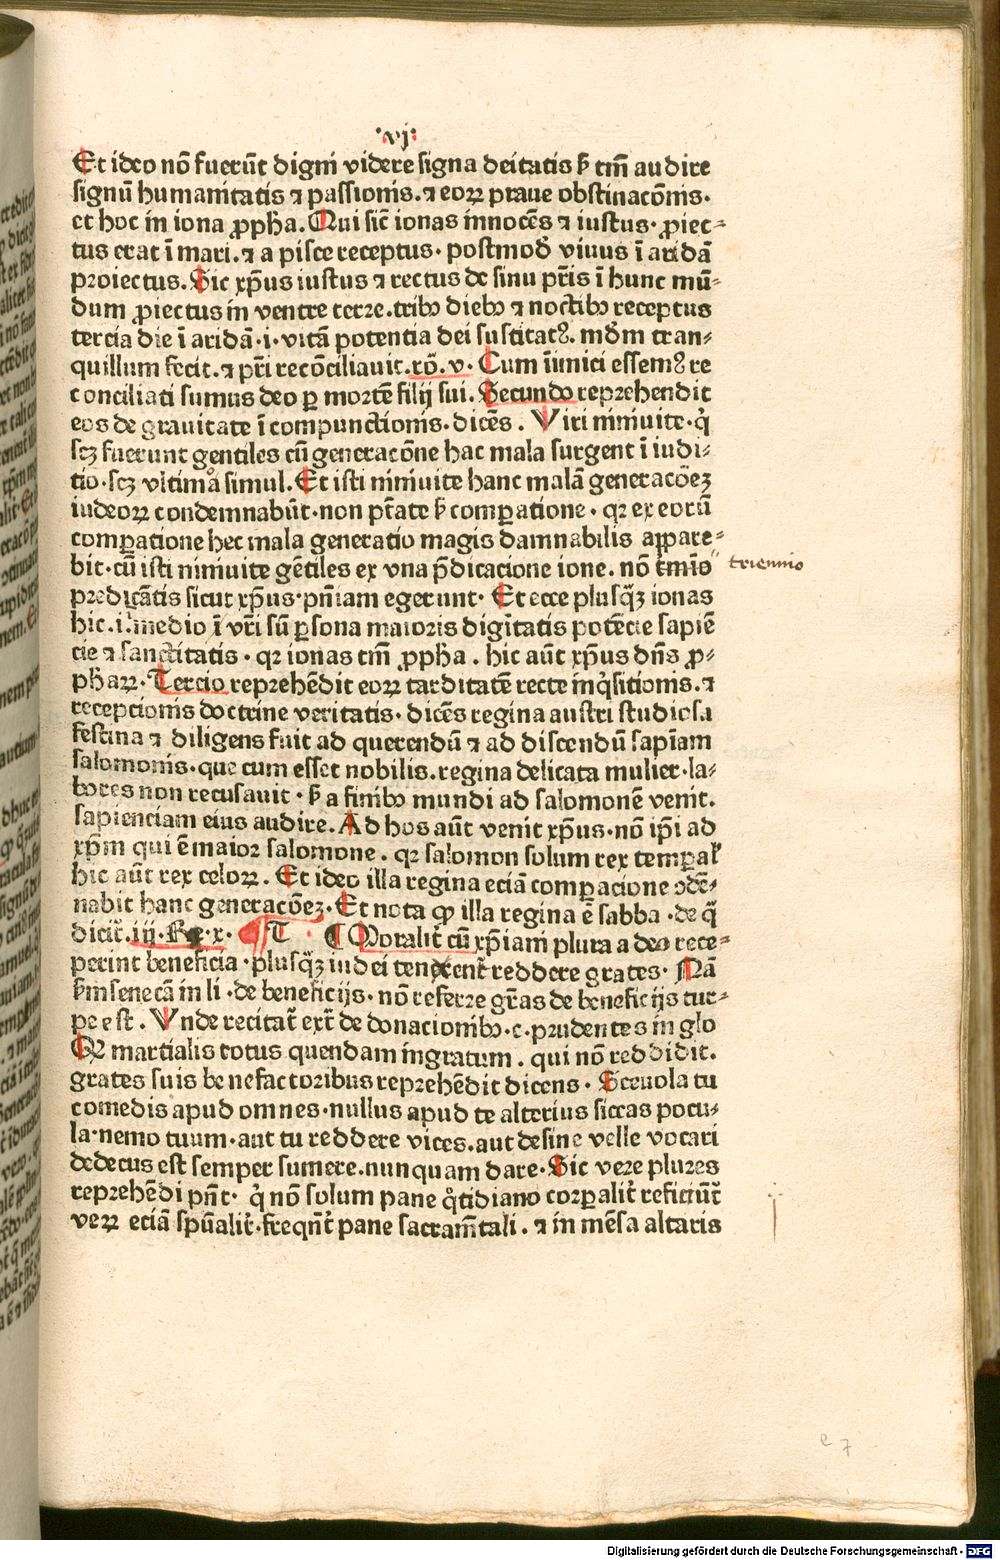 ·vj·
Et ideo nō fuerūt digni videre signa deitatis ꝭ tm̄ audire
signū humanitatis ⁊ passionis. ⁊ eoꝝ praue obstinacōnis.
et hoc in iona ꝓpħa. Qui sic̄ ionas innocēs ⁊ iustus· ꝓiec⸗
tus erat ī mari. ⁊ a pisce receptus· postmod̄ viuus ī aridā
proiectus. Sic xp̄us iustus ⁊ rectus de sinu pr̄is ī hunc mū⸗
dum ꝓiectus in ventre terre. tribꝰ diebꝰ ⁊ noctibꝰ receptus
tercia die ī aridā· i· vitā potentia dei suscitat᷑. mōm tran⸗
quillum fecit. ⁊ pr̄i recōciliauit. rō. v. Cum īimici essem᷑ re
conciliati sumus deo ꝑ mortē filij sui. Secundo reprehendit
eos de grauitate ī compunctionis. dicēs. Viri niniuite· q̇
scꝫ fuerunt gentiles cū generacōne hac mala surgent ī iudi⸗
tio· scꝫ vltimā simul. Et isti niniuite hanc malā generacōeꝫ
iudeoꝝ condemnabūt· non pt̄ate ꝭ comꝑatione· qꝛ ex eorū
comꝑatione hec mala generatio magis damnabilis appare⸗
bit· cū isti niniuite gētiles ex vna p̄dicacione ione. nō tr̄mīo
triennio
predicātis sicut xp̄us· pn̄iam egerunt· Et ecce plusq̄ꝫ ionas
hic. i. medio ī vr̄i sū ꝑsona maioris dignitatis potēcie sapiē
cie ⁊ sanctitatis· qꝛ ionas tm̄ ꝓpħa. hic aūt xp̄us dn̄s ꝓ⸗
pħaꝝ. Tercio reprehēdit eoꝝ tarditatē recte inq̇sitionis. ⁊
recepcionis doctrine veritatis· dicēs regina austri studiosa
festina ⁊ diligens fuit ad querendū ⁊ ad discendū sapīam
salomonis· que cum esset nobilis. regina delicata mulier· la⸗
bores non recusauit· ꝭ a finibꝰ mundi ad salomonē venit.
sapienciam eius audire. Ad hos aūt venit xp̄us· nō ip̄i ad
xp̄m qui ē maior salomone. qꝛ salomon solum rex temꝑal̄
hic aūt rex celoꝝ. Et ideo illa regina eciā comꝑacione ↄdē⸗
nabit hanc generacōeꝫ. Et nota ꝙ illa regina ē sabba· de q̄
dicit᷑. iij. Reg. x. ¶ T ¶ Moralit᷑ cū xp̄iani plura a deo rece⸗
perint beneficia· plusq̄ꝫ iudei tenerent᷑ reddere grates· Nā
ẜm senecā in li· de beneficijs· nō referre gr̄as de beneficijs tur⸗
pe est. Vnde recitat᷑ ext᷑ de donacionibꝰ· c· prudentes in glo
Qꝛ martialis totus quendam ingratum. qui nō reddidit.
grates suis benefactoribus reprehēdit dicens· Sceuola tu
comedis apud omnes· nullus apud te alterius siccas pocu⸗
la· nemo tuum· aut tu reddere vices. aut desine velle vocari
dedecus est semper sumere. nunquam dare· Sic vere plures
reprehēdi pn̄t· q̇ nō solum pane q̇tidiano corꝑalit᷑ reficiūt᷑
veꝝ eciā spūalit᷑· freqn̄t᷑ pane sacram̄tali. ⁊ in mēsa altaris
e 7
Digitalisierung gefördert durch die Deutsche Forschungsgemeinschaft - DFG